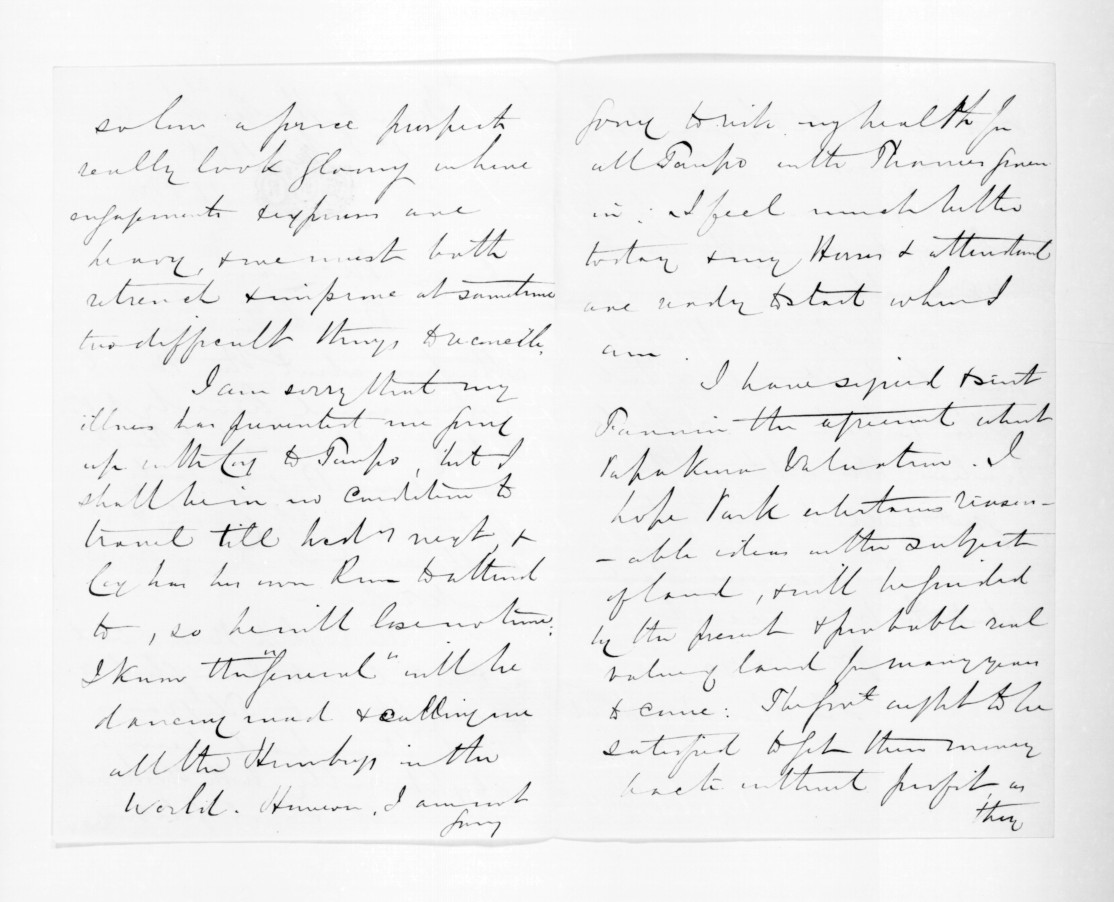 so low a price prospects
really look gloomy where
engagements & expenses are
heavy, & we must both
retrench & improve at sametime
two difficult things to reconcile.
I am sorry that my
illness has prevented me going
up with Cox to Taupo, but I
shall be in no condition to
travel till next, &
Cox has his own Run to attend
to, so he will lose no time:
I know the "General" will be
dancing mad & calling me
all the Humbugs in the
World. However, I am not
going
going to risk my health for
all Taupo with Thames thrown
in: I feel much better
today & my Horses & attendant
are ready to start when I
am.
I have signed & sent
Fannin the agreement about
Papakura Valuation. I
hope Park entertains reason-
-able ideas on the subject
of land, & will be guided
by the present & probable real
value of land for many years
to come: The Govt ought to be
satisfied to get their money
back without profit, as
they